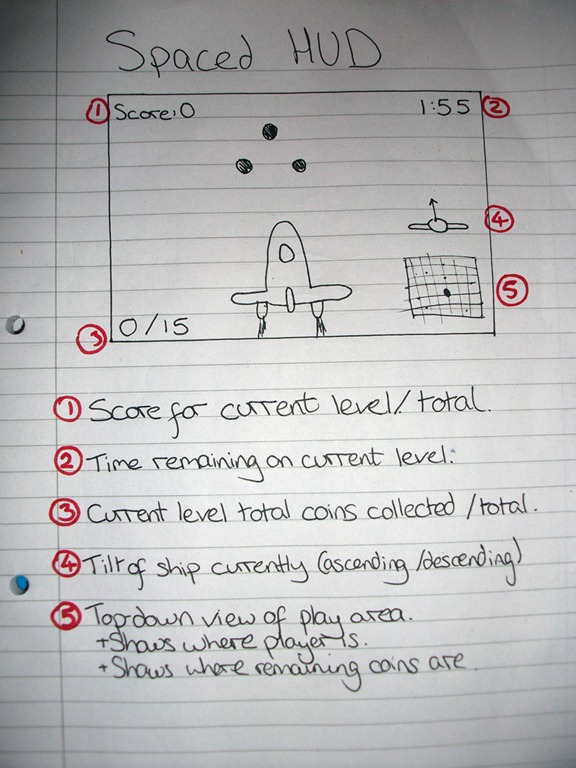 Spaced HUD
① Score: 0 1:55 ②
④
⑤
③ 0/15
① Score for current level/total.
② Time remaining on current level.
③ Current level total coins collected/total.
④ Tilt of ship currently (ascending/descending)
⑤ Top down view of play area.
+Shows where player is.
+Shows where remaining coins are.